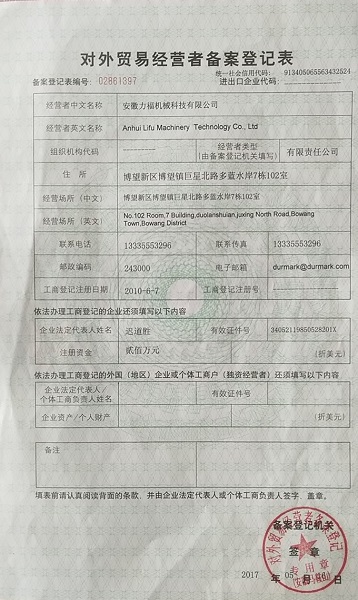 对外贸易经营者备案登记表
统一社会信用代码： 913405065563432524
备案登记表编号： 02861397 进出口企业代码：
经营者中文名称 安徽力福机械科技有限公司
经营者英文名称 Anhui Lifu Machinery Technology Co., Ltd
组织机构代码 ---------- 经营者类型（由备案登记机关填写） 有限责任公司
住 所 博望新区博望镇巨星北路多蓝水岸7栋102室
经营场所（中文） 博望新区博望镇巨星北路多蓝水岸7栋102室
经营场所（英文） No.102 Room,7 Building,duolanshuian,juxing North Road,Bowang
Town,Bowang District
联系电话 13335553296 联系传真 13335553296
邮政编码 243000 电子邮箱 durmark@durmark.com
工商登记注册日期 2010-6-7 工商登记注册号 ----------
依法办理工商登记的企业还须填写以下内容
企业法定代表人姓名 迟道胜 有效证件号 34052119850528201X
注册资金 贰佰万元 （折美元）
依法办理工商登记的外国（地区）企业或个体工商户（独资经营者）还须填写以下内容
企业法定代表人/
个体工商负责人姓名 有效证件号
企业资产/个人财产 （折美元）
备注
填表前请认真阅读背面的条款，并由企业法定代表人或个体工商负责人签字、盖章。
备案登记机关
签 章
对外贸易经营者备案登记
专用章
2017 05